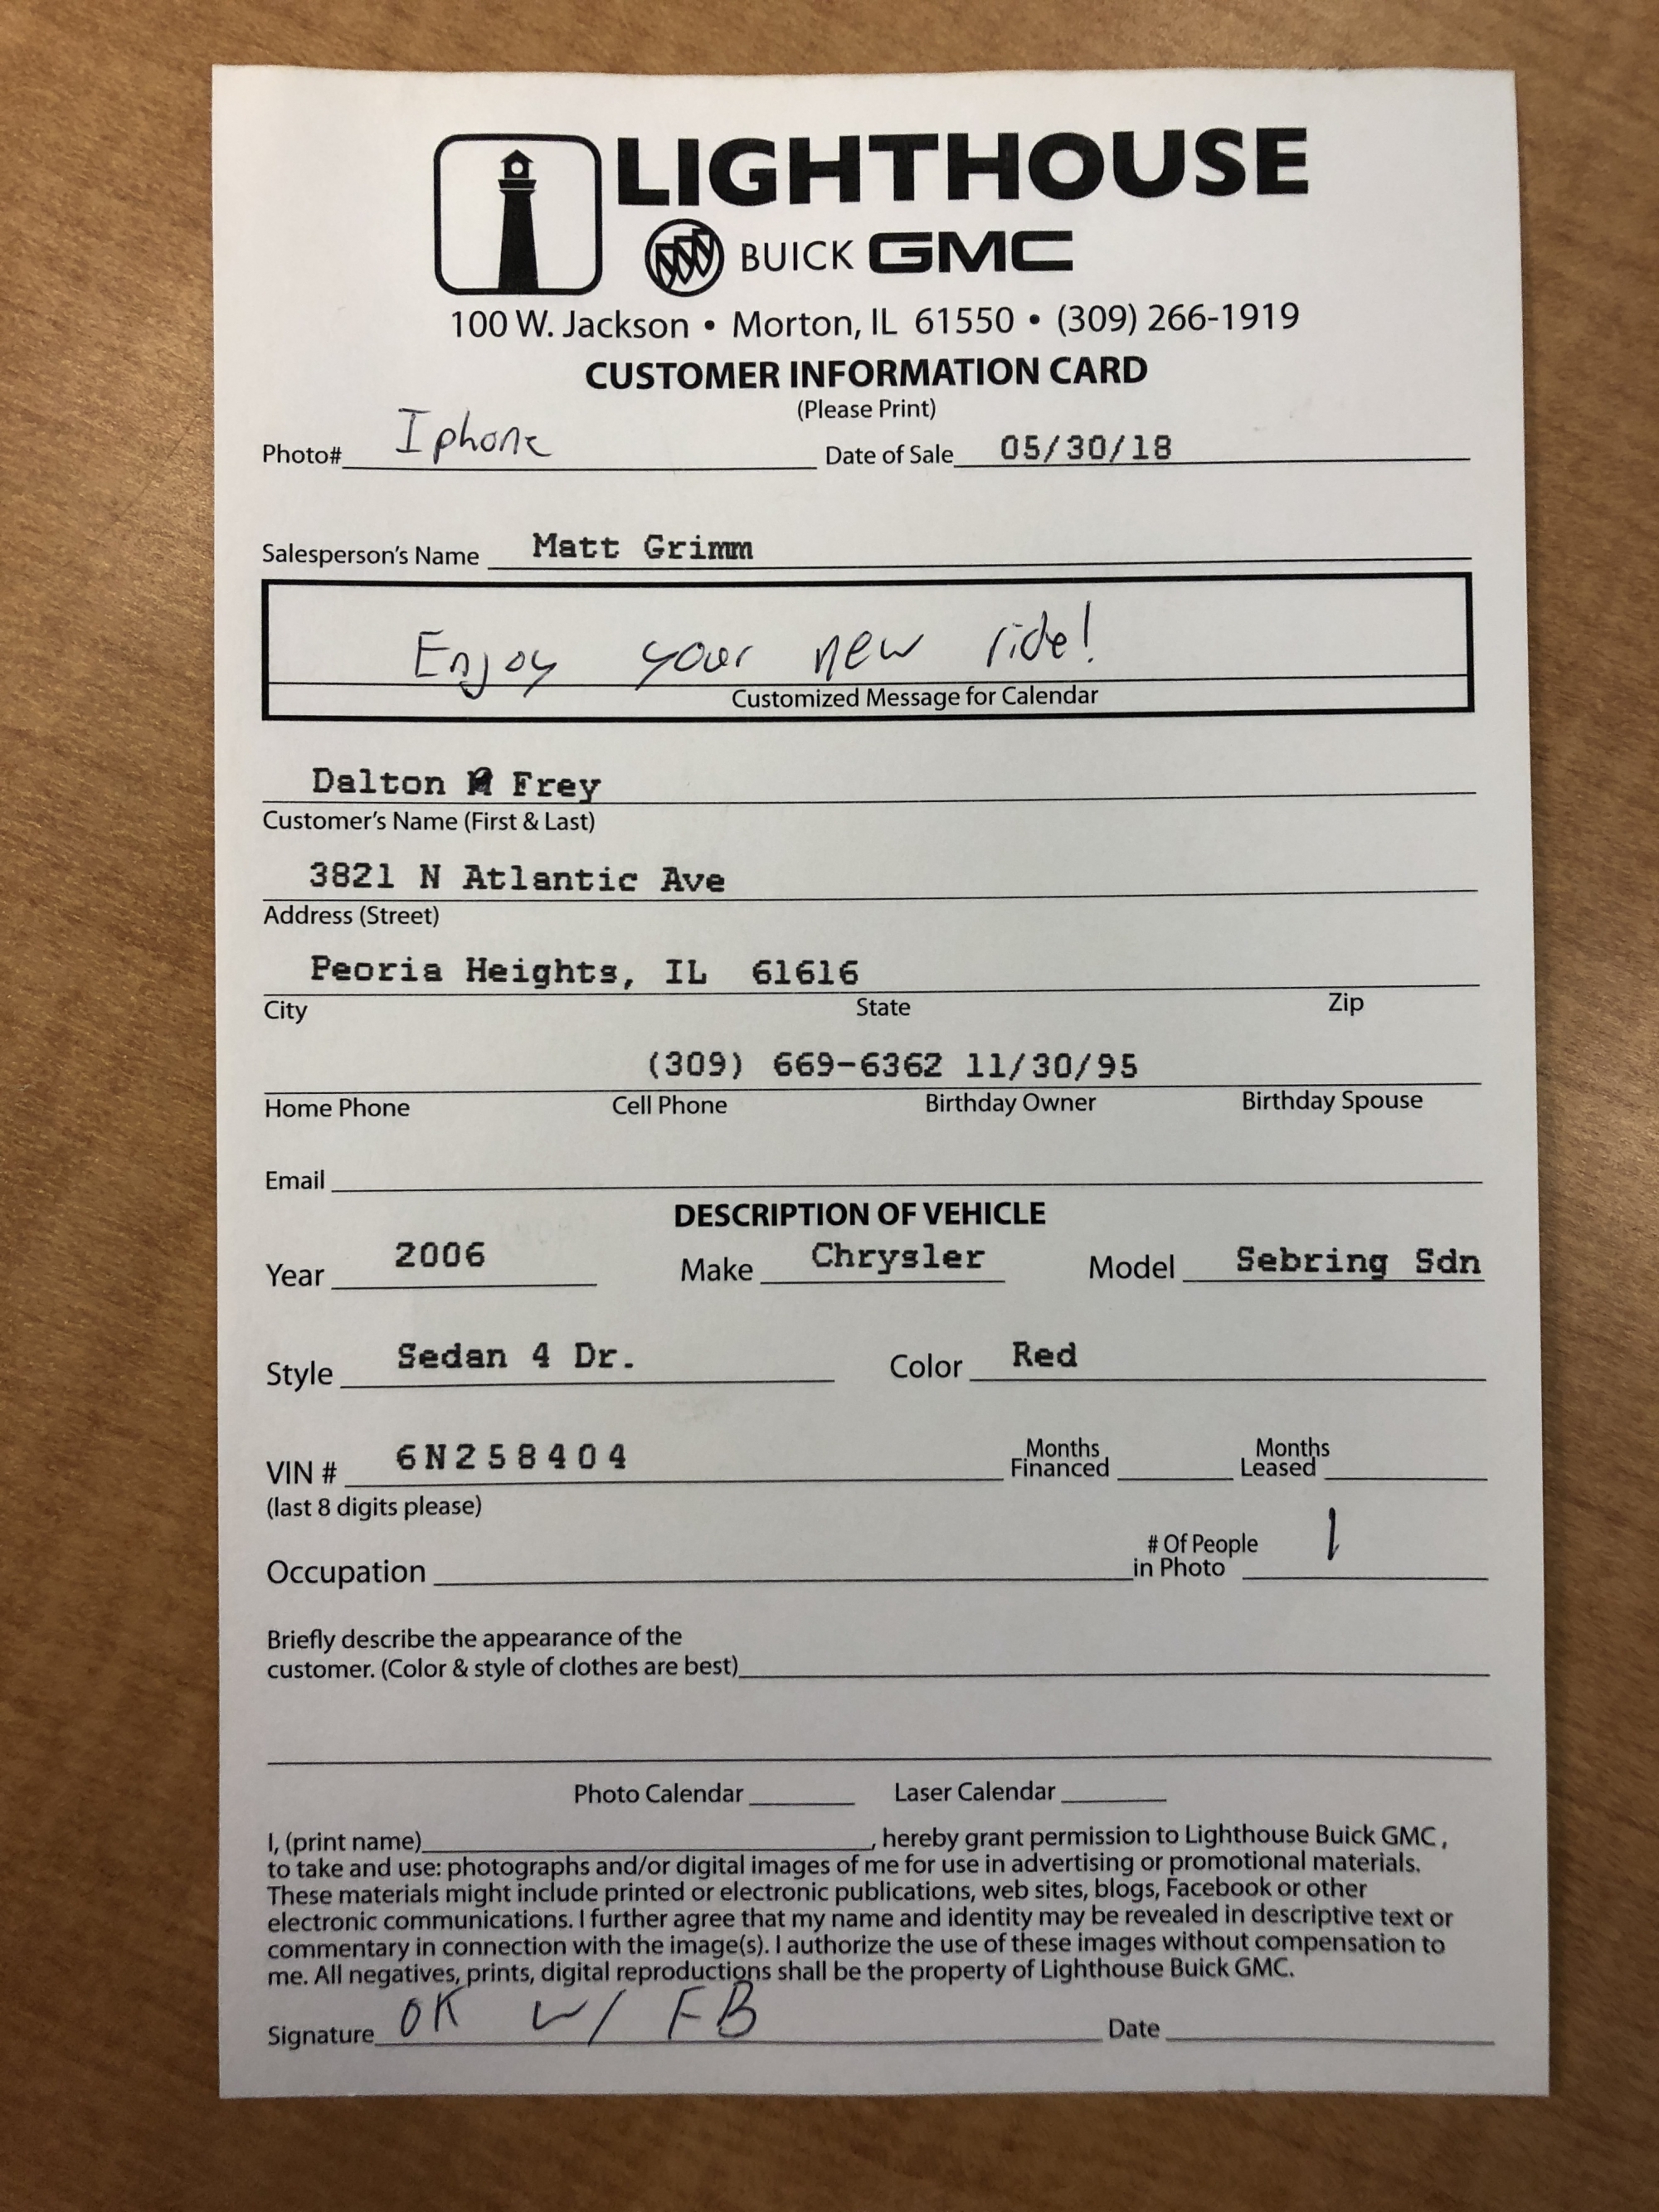 LIGHTHOUSE
BUICK GMC
100 W. Jackson • Morton, IL 61550 • (309) 266-1919
CUSTOMER INFORMATION CARD
(Please Print)
Photo# Iphone Date of Sale 05/30/18
Salesperson's Name Matt Grimm
Enjoy your new ride!
Customized Message for Calendar
Dalton Frey
Customer's Name (First & Last)
3821 N Atlantic Ave
Address (Street)
Peoria Heights, IL 61616
City State Zip
(309) 669-6362 11/30/95
Home Phone Cell Phone Birthday Owner Birthday Spouse
Email
DESCRIPTION OF VEHICLE
Year 2006 Make Chrysler Model Sebring Sdn
Style Sedan 4 Dr. Color Red
VIN # 6N258404 Months Financed Months Leased
(last 8 digits please)
Occupation # Of People in Photo 1
Briefly describe the appearance of the
customer. (Color & style of clothes are best)
Photo Calendar Laser Calendar
I, (print name) , hereby grant permission to Lighthouse Buick GMC,
to take and use: photographs and/or digital images of me for use in advertising or promotional materials.
These materials might include printed or electronic publications, web sites, blogs, Facebook or other
electronic communications. I further agree that my name and identity may be revealed in descriptive text or
commentary in connection with the image(s). I authorize the use of these images without compensation to
me. All negatives, prints, digital reproductions shall be the property of Lighthouse Buick GMC.
Signature OK w/ FB Date